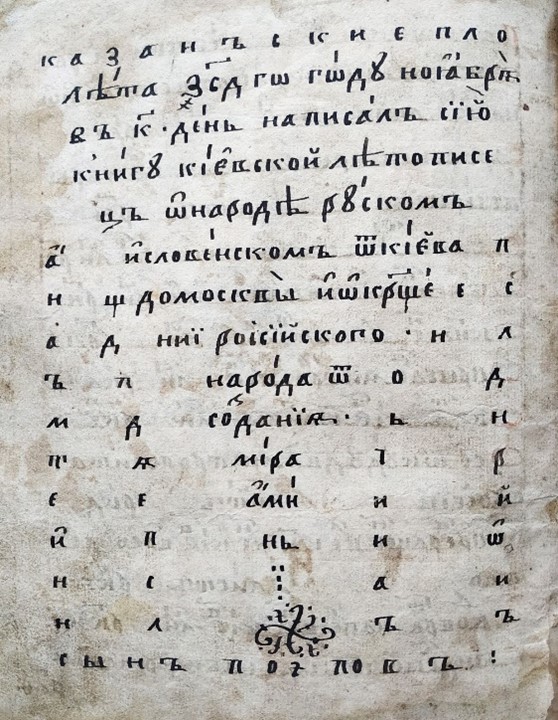 к а з а н ъ с к и е п л о
лѣта ҂зсд гѡ гѡду ноіѧбрѣ
въ к҃ · де́нь написалъ сїю̀
книгу кіевской лѣтописе
цъ ѡ народѣ рускомъ
а҆ и҆словенскомъ ѿкіева п
н щ домосквы и҆ѡкрще е с
а д нїі роісїйского · н л
ъ п наро́да ѿ о д
м д соⷣданїѧ · ь н
п ѧ міра ї р
е е а҆мі и й
и҆ п нь и ѡ
н с а и
н л ъ ъ
с ы н ъ п о п о в ъ !